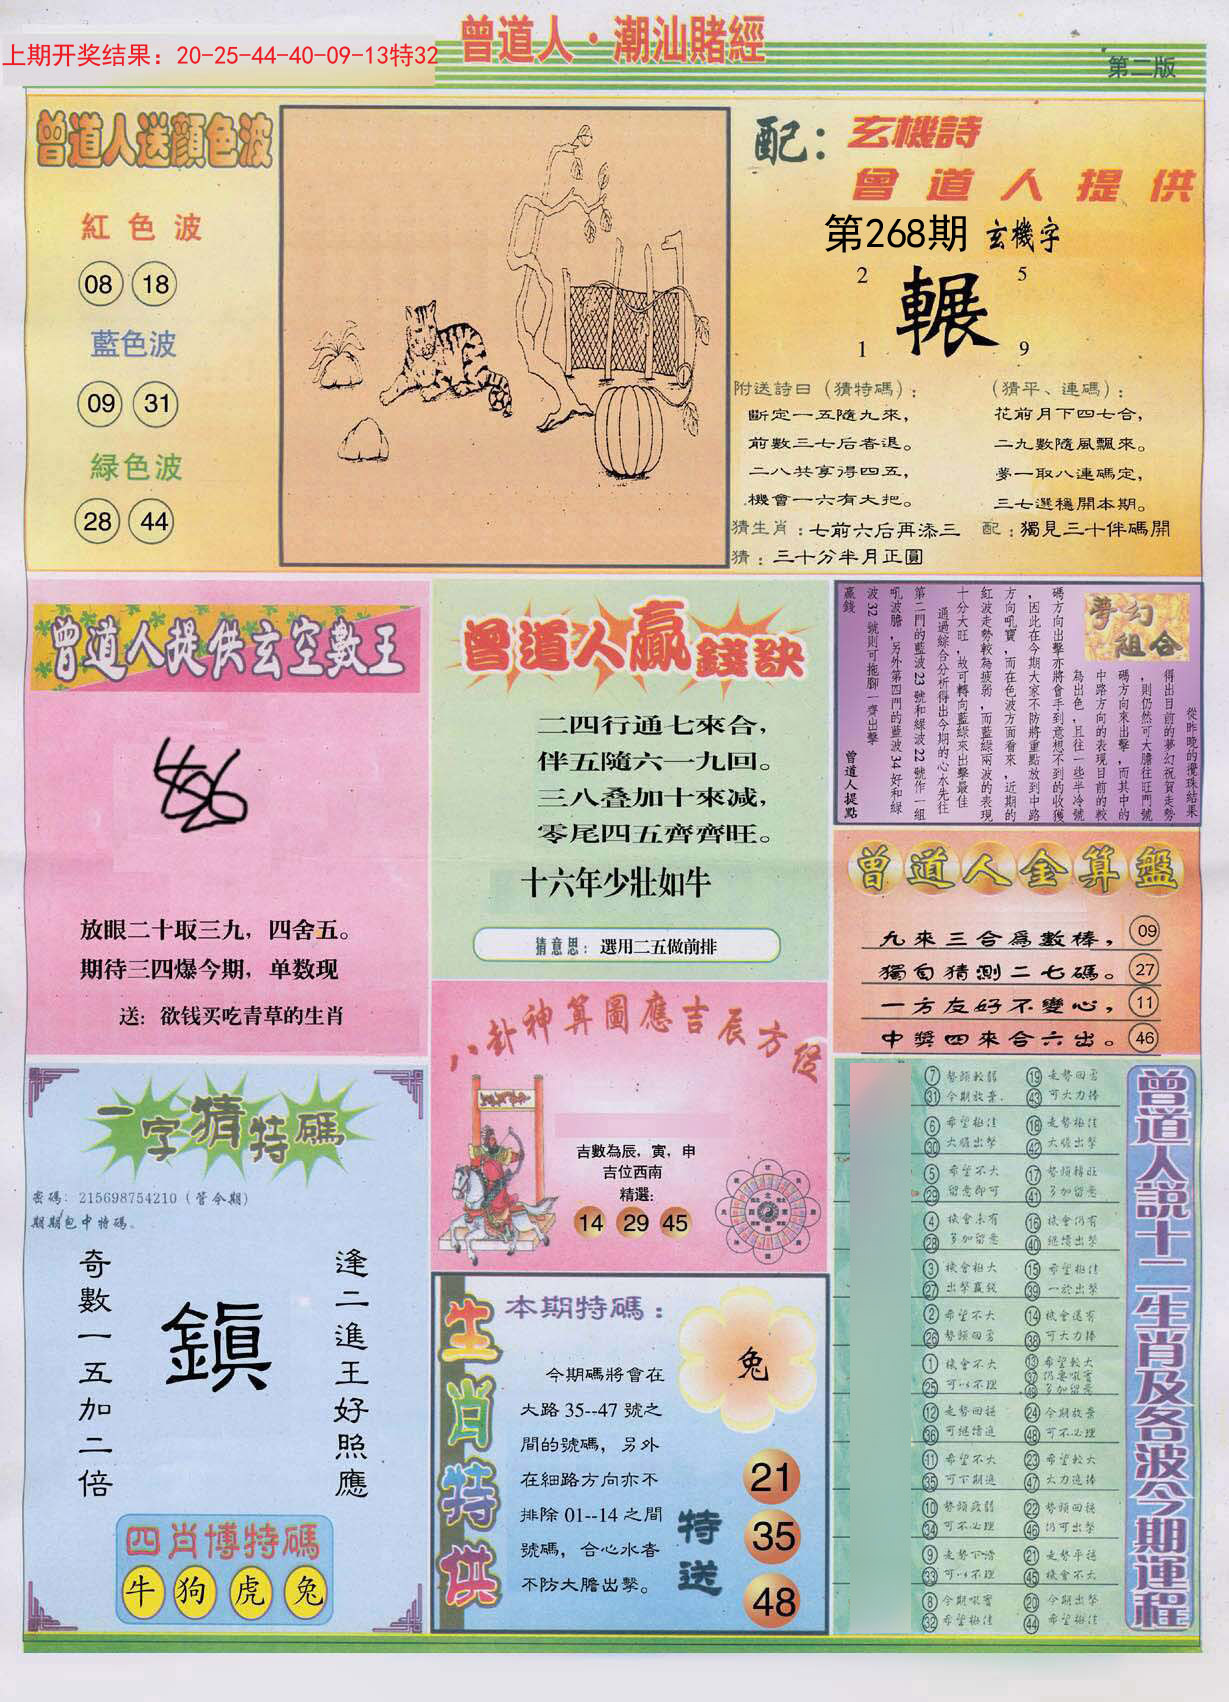 上期开奖结果：20-25-44-40-09-13特32
曾道人·潮汕賭經
第二版
曾道人送顔色波
紅色波
08 18
藍色波
09 31
緑色波
28 44
配：玄機詩
曾道人提供
第268期 玄機字
2 5
輾
1 9
附送詩曰（猜特碼）：
斷定一五隨九來，
前數三七后者退。
二八共享得四五，
機會一六有大把。
（猜平、連碼）：
花前月下四七合，
二九數隨風飄來。
夢一取八連碼定，
三七選穩開本期。
猜生肖：七前六后再添三
配：獨見三十伴碼開
猜：三十分半月正圓
曾道人提供玄空數王
放眼二十取三九，四舍五。
期待三四爆今期，单数现
送：欲钱买吃青草的生肖
曾道人贏錢訣
二四行通七來合，
伴五隨六一九回。
三八叠加十來减，
零尾四五齊齊旺。
十六年少壯如牛
猜意思：選用二五做前排
夢幻組合
從昨晚的攪珠結果
得出目前的夢幻祝賀走勢
，則仍然可大膽往旺門號
碼方向來出擊，而其中的
中路方向的表現目前的較
為出色，且往一些半冷號
碼方向出擊亦將會手到意想不到的收獲
，因此在今期大家不防將重點放到中路
方向吼寶，而在色波方面看來，近期的
紅波走勢較為疲弱，而藍綠兩波的表現
十分大旺，故可轉向藍綠來出擊最佳
通過綜合分析得出今期的心水先往
第二門的藍波23號和綠波22號作一組
吼波膽，另外第四門的藍波34好和綠
波32號則可拖腳一齊出擊
贏錢
曾道人提點
曾道人金算盤
九來三合爲數棒， 09
獨自猜測二七碼。 27
一方友好不變心， 11
中獎四來合六出。 46
八卦神算圖應吉辰方位
吉數為辰，寅，申
吉位西南
精選：
14 29 45
一字猜特碼
密碼：215698754210（管今期）
期期包中特碼。
奇數一五加二倍
鎭
逢二進王好照應
四肖博特碼
牛 狗 虎 兔
生肖特供
本期特碼：
兔
今期碼將會在
大路35--47號之
間的號碼，另外
在細路方向亦不
排除01--14之間
號碼，合心水者
不防大膽出擊。
特送
21
35
48
曾道人説十二生肖及各波今期運程
7 勢頭較弱 19 走勢回勇
31 今期放棄 43 可大力捧
6 希望極佳 18 走勢極佳
30 大膽出擊 42 大膽出擊
5 希望不大 17 勢頭轉旺
29 留意即可 41 多加留意
4 機會未有 16 機會仍有
28 多加留意 40 繼續出擊
3 機會極大 15 希望極佳
27 出擊贏錢 39 一於出擊
2 希望不大 14 機會還有
26 勢頭回勇 38 可大力捧
1 機會不大 13 希望較大
25 可以不理 37 仍要吼實
49 多加留意
12 走勢回穩 24 今期放棄
36 可繼續追 48 可不必理
11 希望不大 23 希望較大
35 可下期追 47 大力追捧
10 勢頭疲弱 22 勢頭回穩
34 可不必理 46 仍可出擊
9 走勢下滑 21 走勢平穩
33 可以不理 45 機會不大
8 今期吼實 20 今期出擊
32 希望極佳 44 希望極佳